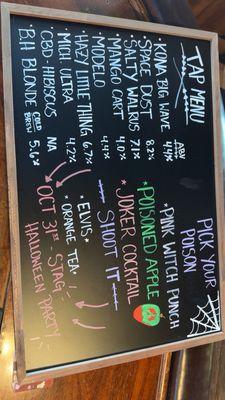 TAP MENU
ABV
• KONA BIG WAVE 4.4%
• SPACE DUST 8.2%
• SALTY WALRUS 7.1%
• MANGO CART 4.0%
• MODELO 4.4%
• HAZY LITTLE THING 6.7%
• MICH ULTRA 4.2%
• CBD-HIBISCUS NA
• B.H BLONDE COLD BREW 5.6%
PICK YOUR
POISON
*PINK WITCH PUNCH
*POISONED APPLE
*JOKER COCKTAIL
SHOOT IT
*ELVIS*
*ORANGE TEA*
OCT 31ST STAG
HALLOWEEN PARTY